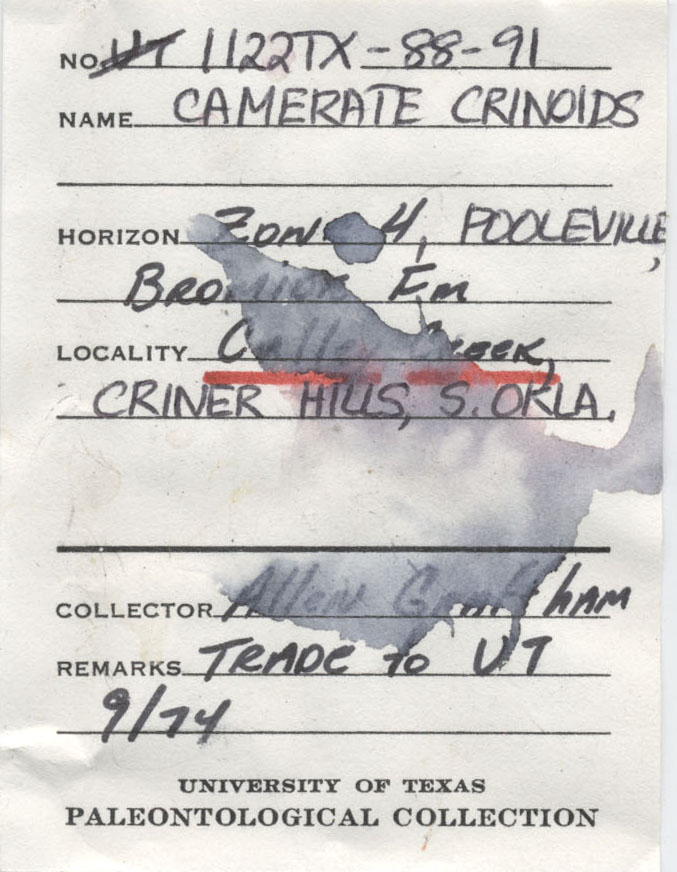 NO. UT 1122TX-88-91
NAME CAMERATE CRINOIDS
HORIZON Zone 4, POOLEVILLE,
Bromide Fm
LOCALITY Creek,
CRINER HILLS, S. OKLA.
COLLECTOR Allen Graffham
REMARKS TRADE to UT
9/74
UNIVERSITY OF TEXAS
PALEONTOLOGICAL COLLECTION